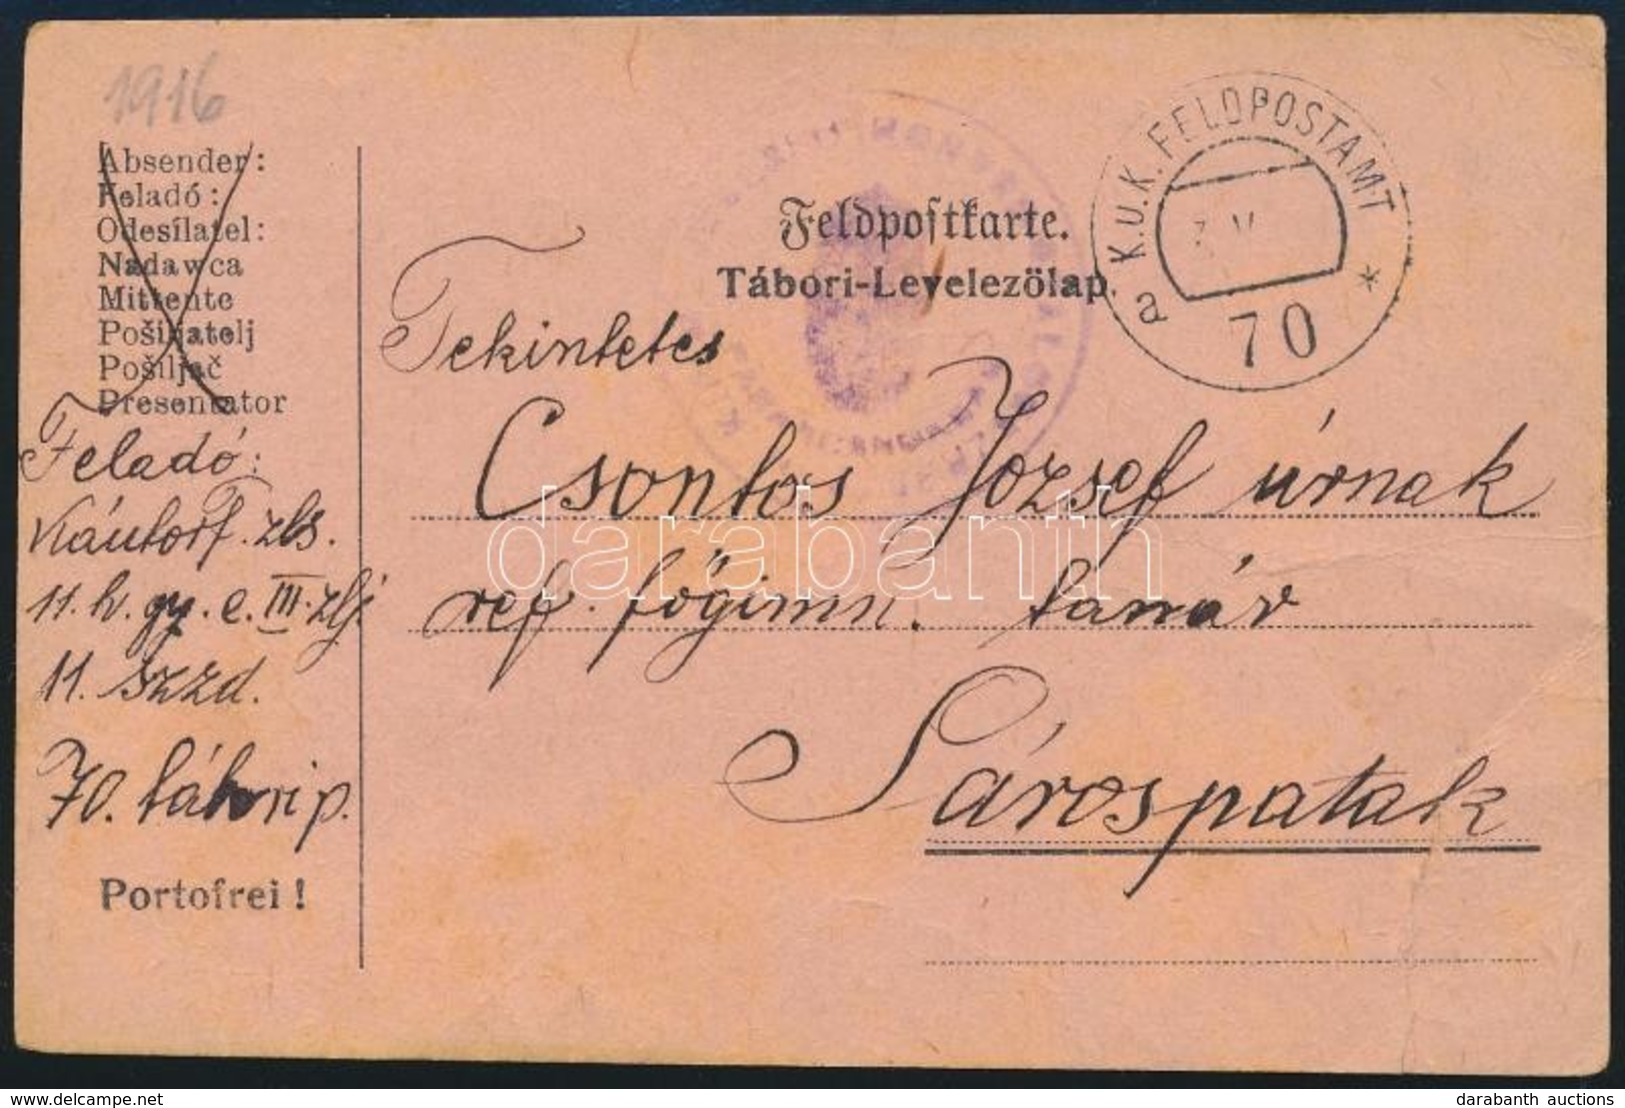 1916
Absender:
Feladó:
Odesílatel:
Nadawca
Mittente
Pošiljatelj
Pošiljač
Presentator
Feladó:
zls.
11. h. gy. e. III. zlj
11. szzd.
70. tábori p.
Portofrei !
Feldpostkarte.
Tábori-Levelezölap.
K.U.K. FELDPOSTAMT
a 70 *
Tekintetes
Csontos József úrnak
ref. főgimn. tanár
Sárospatak
darabanth
delcampe.net
darabanth auctions